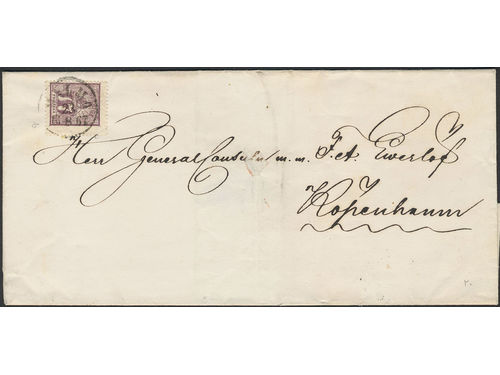 Herr General Consuln m. m. F. et. Ewerlöf
Köpenhamn